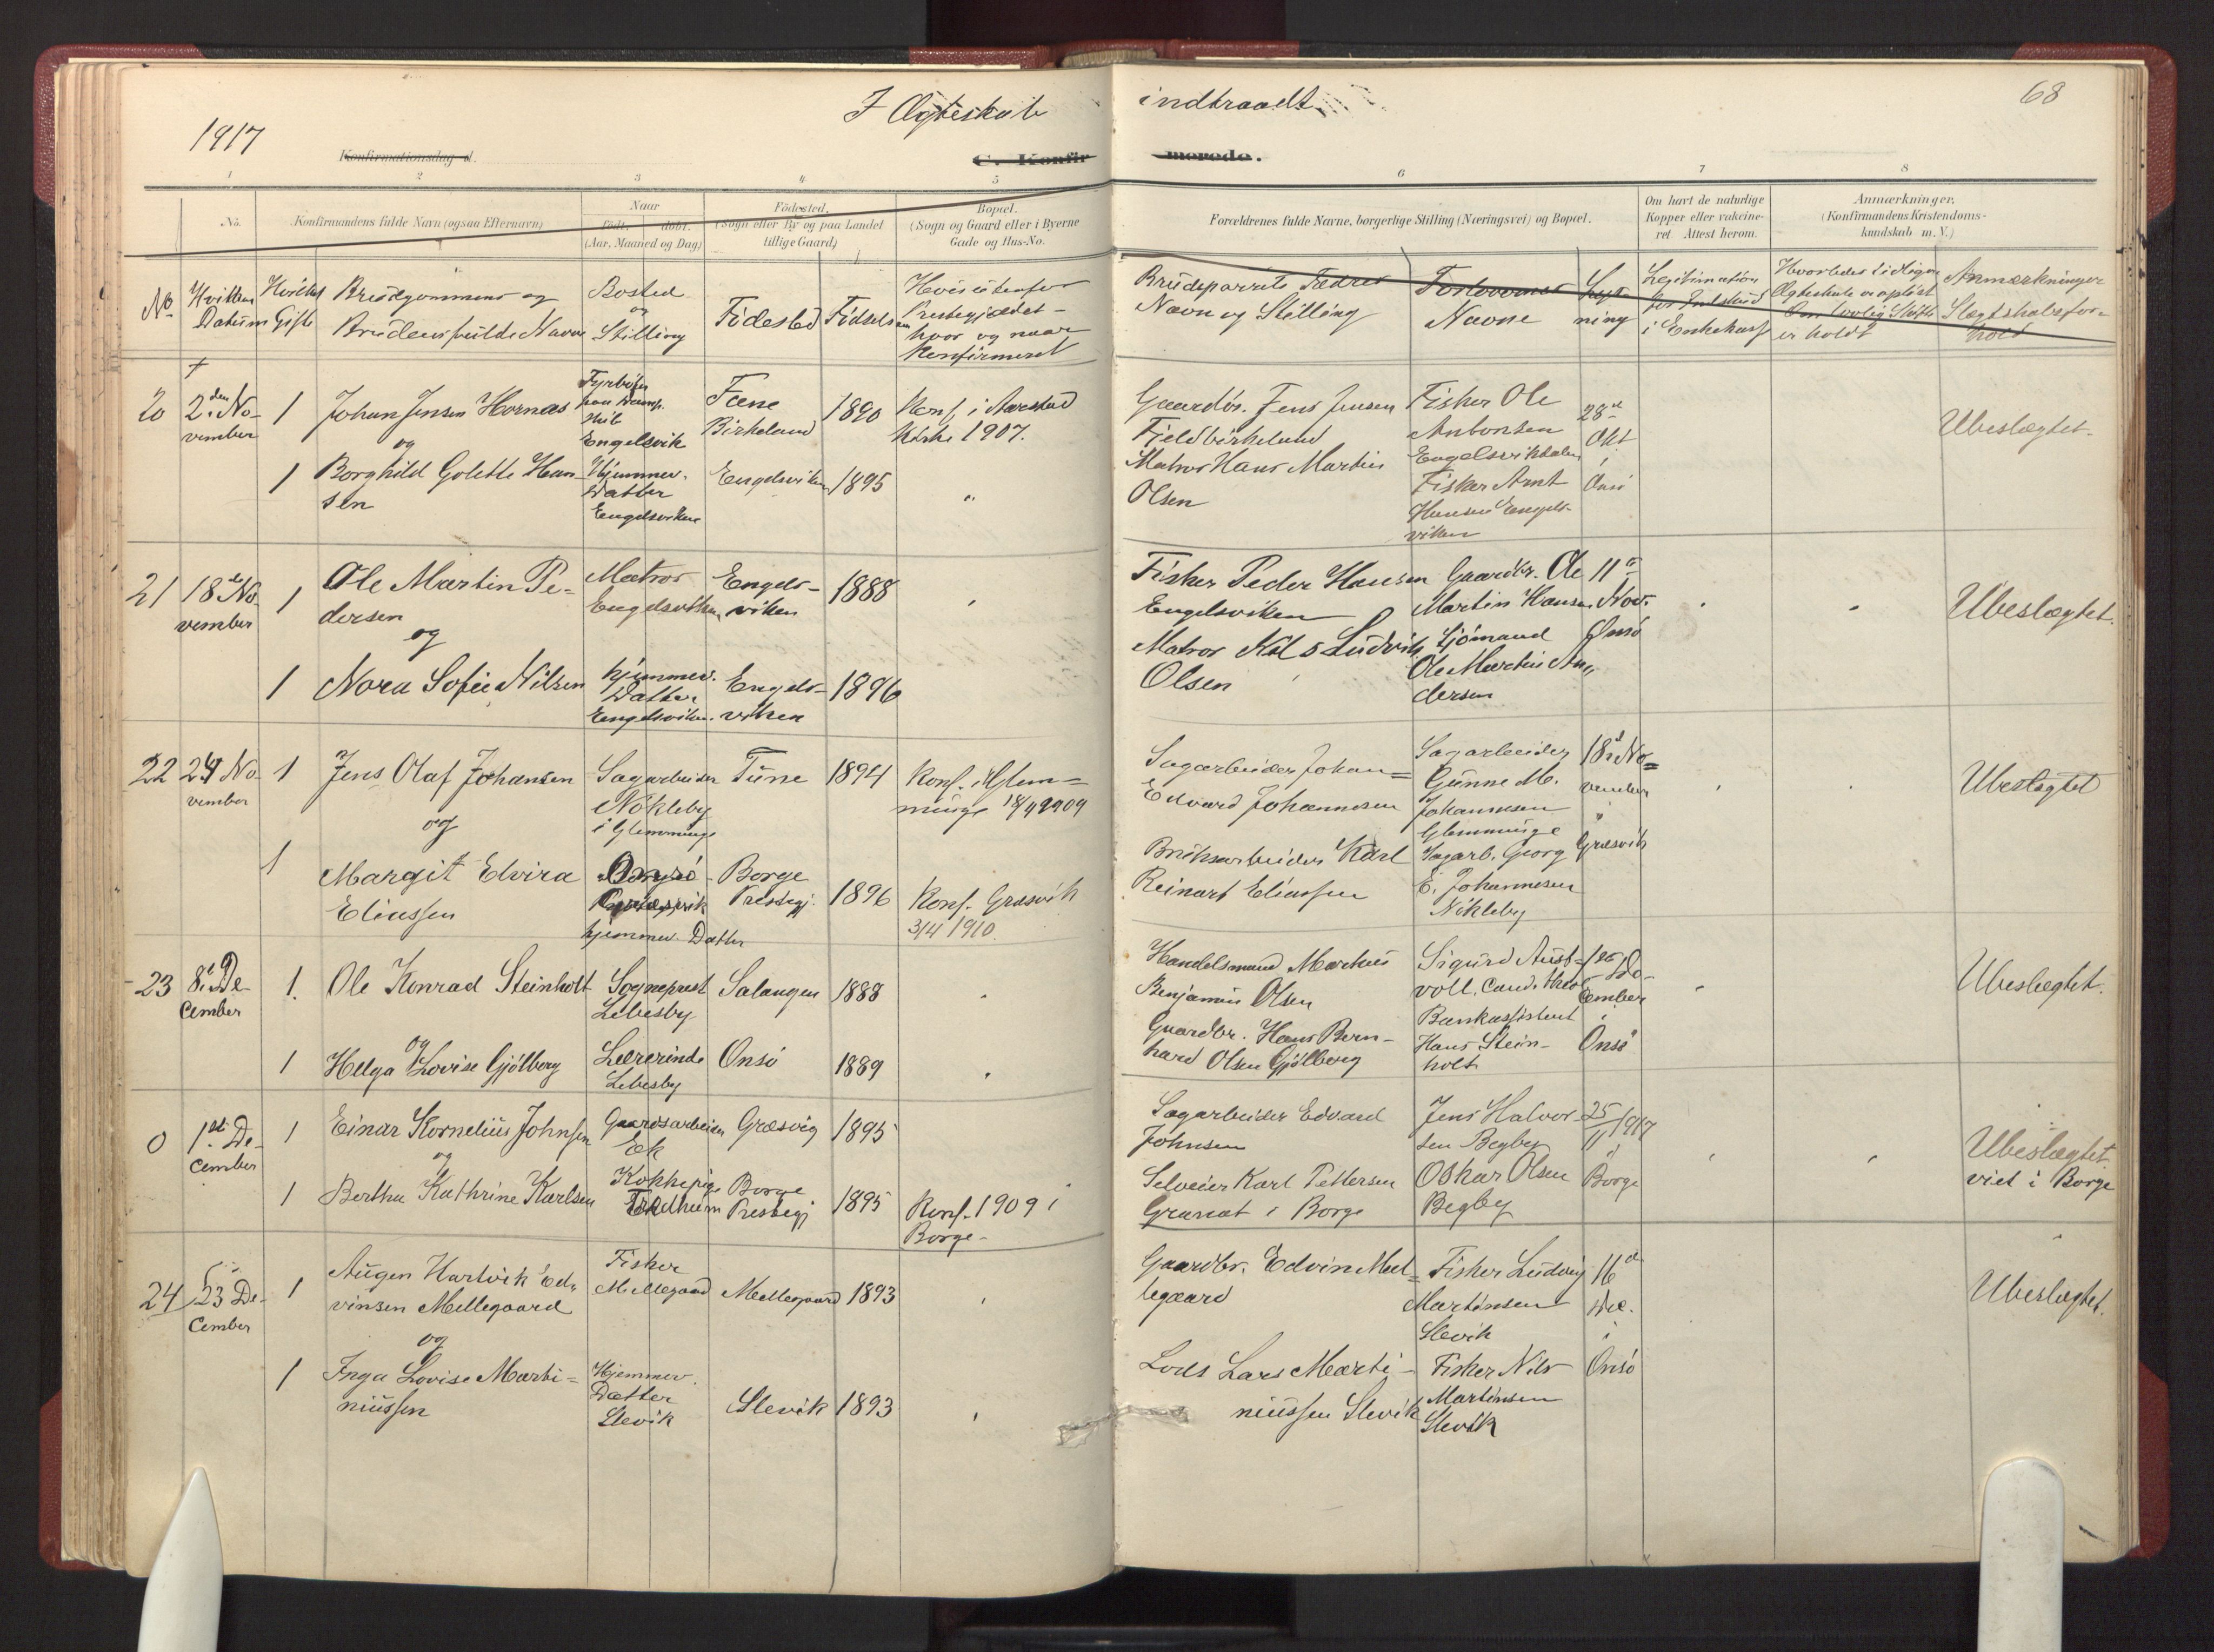 1917
I Ægteskab indtraadt
68
Konfirmationsdag d.
C. Konfirmerede.
1 2 3 4 5 6 7 8
No.
Konfirmandens fulde Navn (ogsaa Efternavn)
Naar
født, døbt.
(Aar, Maaned og Dag)
Fødested.
(Sogn eller By og paa Landet
tillige Gaard)
Bopæl.
(Sogn og Gaard eller i Byerne
Gade og Hus-No.
Forældrenes fulde Navne, borgerlige Stilling (Næringsvei) og Bopæl.
Om havt de naturlige
Kopper eller vakcine-
ret Attest herom.
Anmærkninger.
(Konfirmandens Kristendoms-
kundskab m. V.)
No
Hvilken
Datum
Hvilket
Gifte
Brudgommens og
Brudens fulde Navn
Bosted
og
Stilling
Fødested
Fødselsaar
Hvis udenfor
Prestegjeldet -
hvor og naar
Konfirmeret
Brudeparrets Fædres
Navn og Stilling
Forlovernes
Navne
Lys-
ning
Legitimation
i Enkekasse
Hvorledes tidligere
Ægteskab er opløst
Om lovlig Skifte
er holdt
Anmærkninger
Slægtskabsfor-
hold
20
2. den No-
vember
1
Johan Jensen Hornæs
og
Fyrbøter
paa Damp-
skib
Engelsvik
Fane
Birkeland
1890
Konf. i Aarstad
Kirke 1907.
Gaardbr. Jens Jensen
Fjeldbirkeland
Fisker Ole
Antonsen
Engelsvikdalen
28de
Okt
i
Onsø
Ubeslægtet.
1
Borghild Golette Han-
sen
Hjemmev.
Datter
Engelsviken
Engelsviken
1895
"
Matros Hans Martin
Olsen
Fisker Arnt
Hansen Engels-
viken
21
18de No-
vember
1
Ole Martin Pe-
dersen
og
Matros
Engelsviken
Engels-
viken
1888
Fisker Peder Hansen
Engelsviken
Gaardbr. Ole
Martin Hansen
11te
Nov.
Onsø
Ubeslægtet.
1
Nora Sofie Nilsen
Hjemmev.
Datter
Engelsviken.
Engels-
viken
1896
Matros Nils Ludvik
Olsen
Sjømand
Ole Martin An-
dersen
22
24 No-
vember
1
Jens Olaf Johansen
og
Sagarbeider
Nøkleby
i Glemminge
Tune
1894
Konf. i Glem-
minge 18/4 1909
Sagarbeider Johan
Edvard Johannesen
Sagarbeider
Gunne M.
Johannesen
Glemminge
18d No-
vember
Græsvik
Ubeslægtet
1
Margit Elvira
Eliassen
Græsvik
hjemmev. Datter
Borge
Prestegj.
1896
Konf. Græsvik
3/4 1910.
Bruksarbeider Karl
Reinart Eliassen
Sagarb. Georg
E. Johannesen
Nøkleby
23
8de De-
cember
1.
Ole Konrad Steinholt
og
Sogneprest
Lebesby
Salangen
1888
Handelsmand Markus
Benjamin Olsen
Sigurd Aust-
voll, Cand. theol
1ste De-
cember
i
Onsø
Ubeslægtet.
1
Helga Lovise Gjølberg
Lærerinde
Lebesby
Onsø
1889
Gaardbr. Hans Bern-
hard Olsen Gjølberg
Bankassistent
Hans Stein-
holt
0
1ste De-
cember
1
Einar Kornelius Johnsen
og
Gaardsarbeider
Ek
Græsvig
1895
Sagarbeider Edvard
Johnsen
Jens Halvor-
sen Begby
25/11 1917
i
Borge
Ubeslægtet
viet i Borge
1
Bertha Kathrine Karlsen
Kokkepige
Borge
Prestegj
1895
Konf. 1909 i
Borge -
Selveier Karl Pettersen
Granat i Borge
Oskar Olsen
Begby
24
23 De-
cember
1
Augen Hartvik Ed-
vinsen Mellegaard
og
Fisker
Mellegaard
Mellegaard
1893
Gaardbr. Edvin Mel-
legaard
Fisker Ludvig
Martinsen
Slevik
16de
Dec.
i
Onsø
Ubeslægtet.
1
Inga Lovise Marti-
niussen
Hjemmev.
Datter
Slevik
Slevik
1893
Lods Lars Marti-
niussen Slevik
Fisker Nils
Martinsen
Slevik